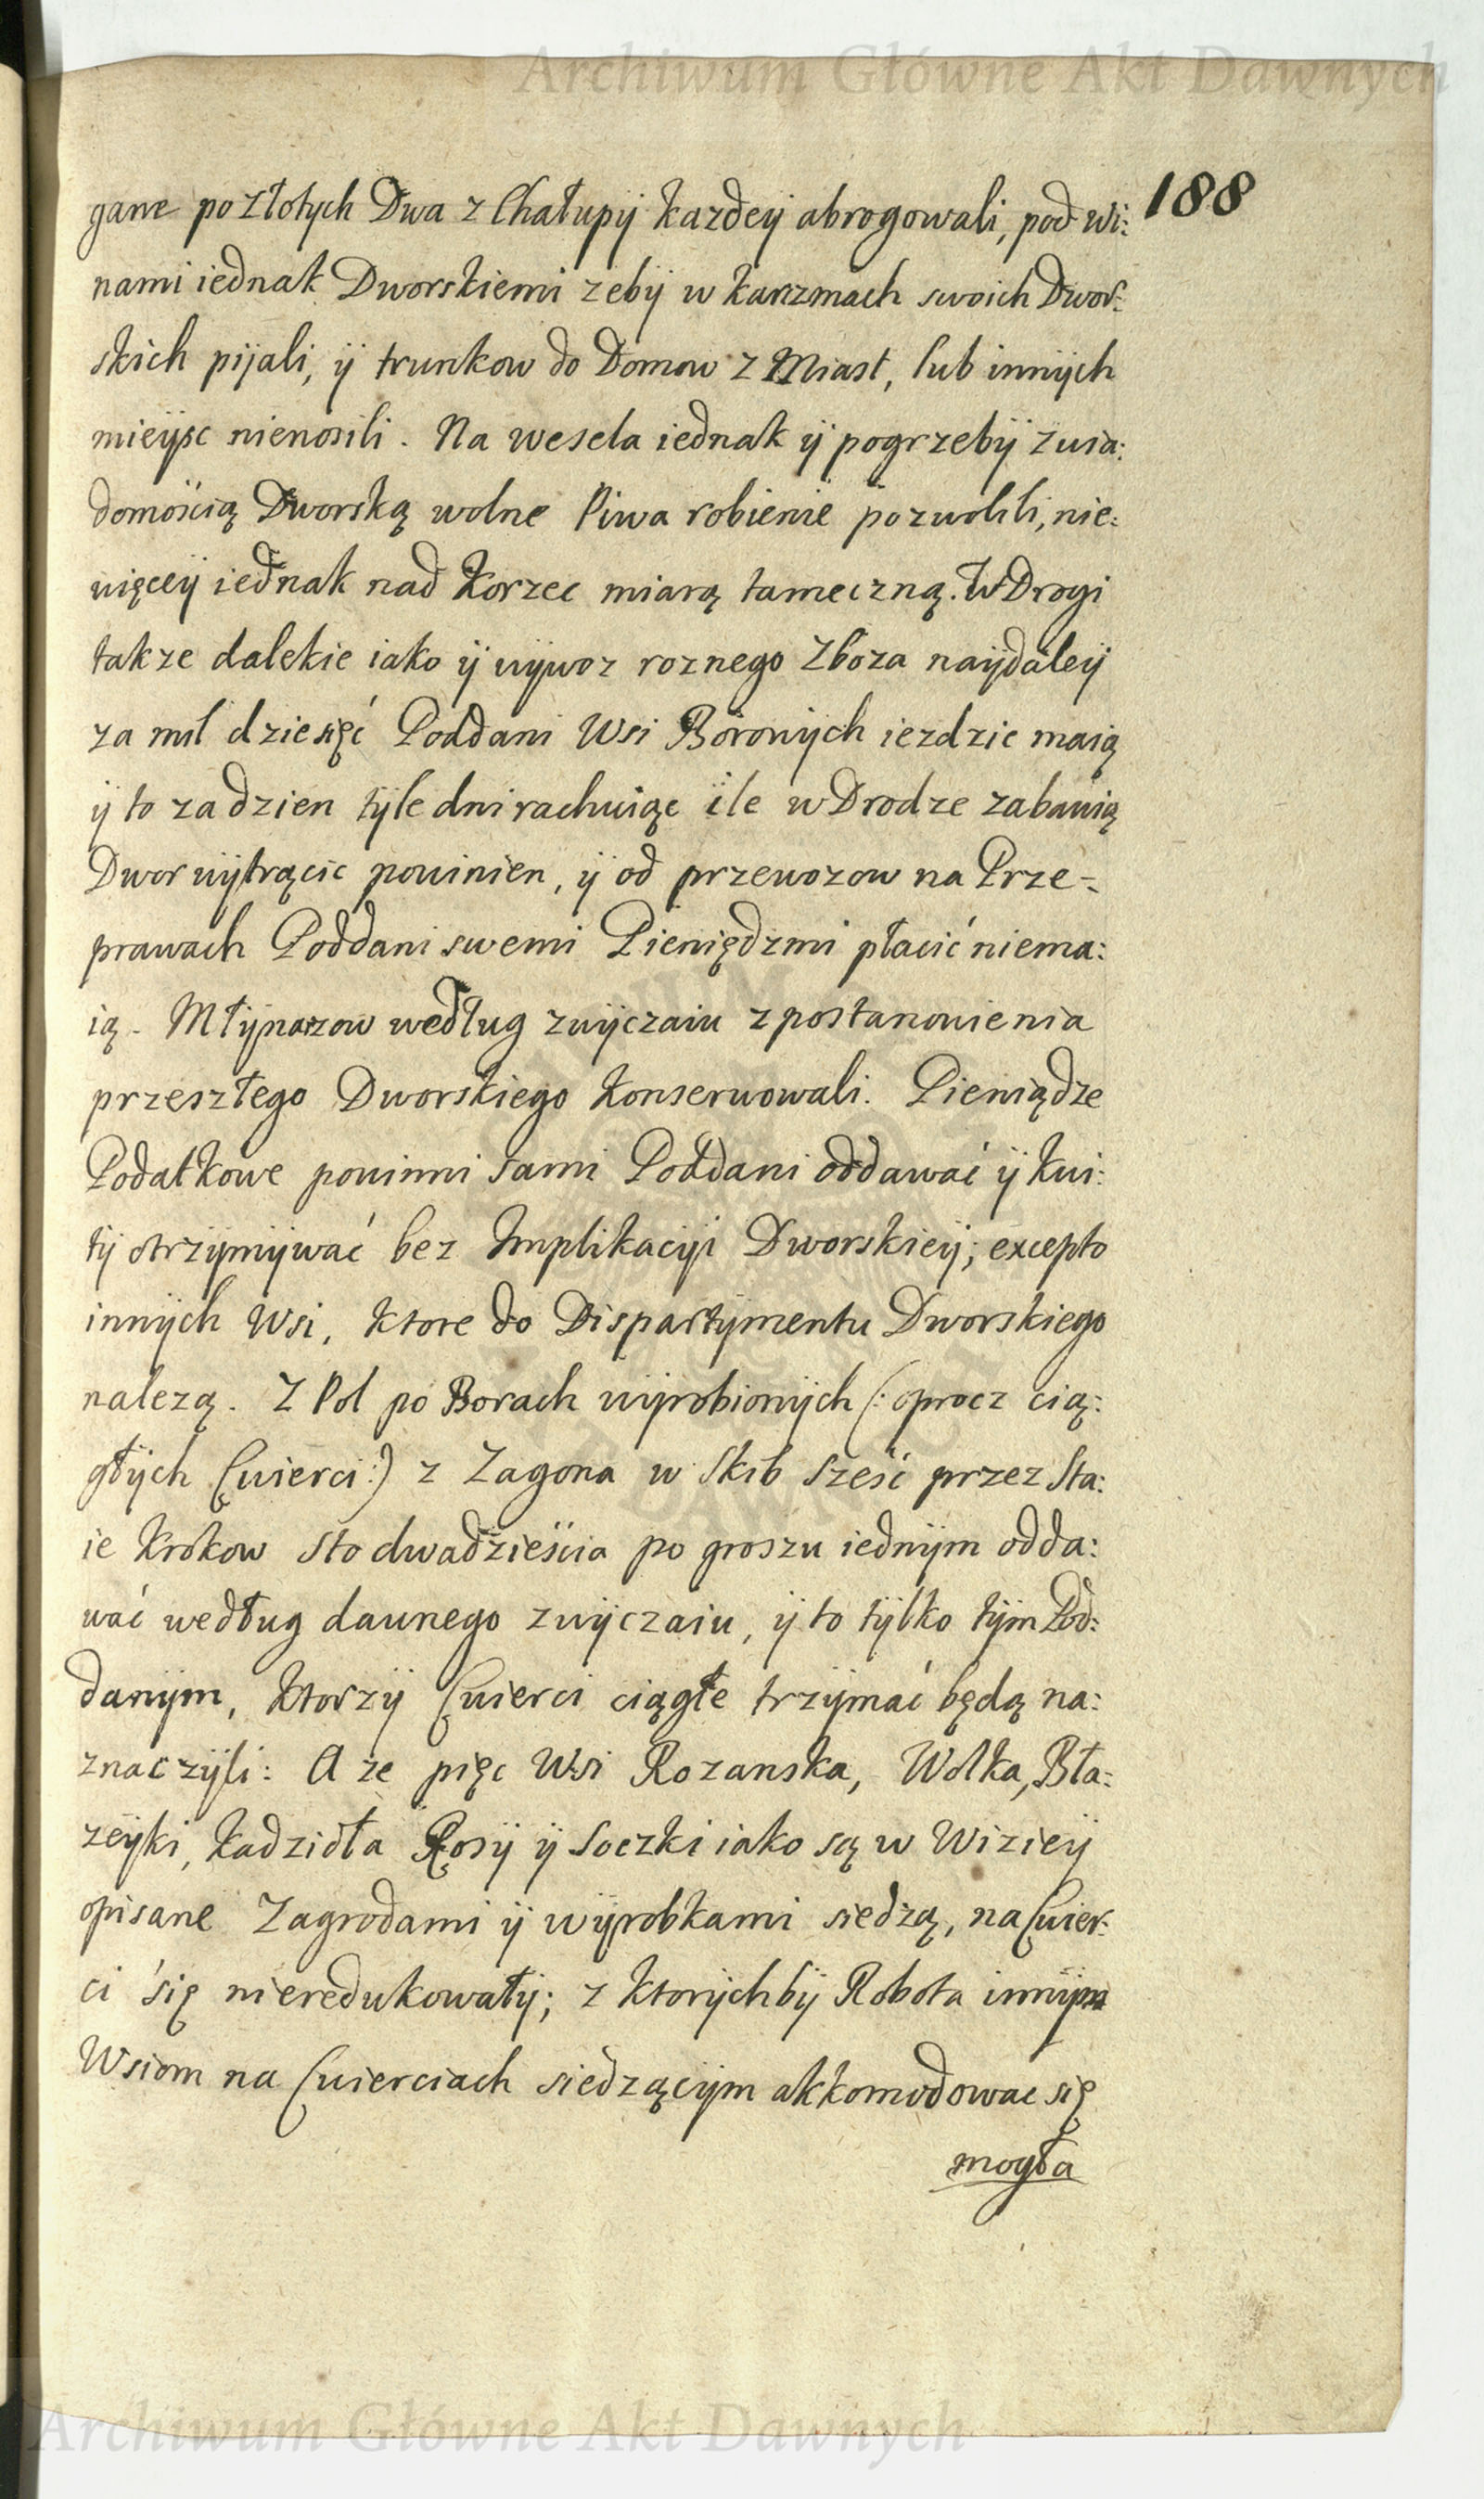 Archiwum Główne Akt Dawnych
188
gane po złotych Dwa z Chałupy każdey abrogowali, pod wi:
nami iednak Dworskiemi zeby w karzmach swoich Dwor:
skich pijali, y trunkow do Domow z Miast, lub innych
mieysc nienosili. Na wesela iednak y pogrzeby zwia:
domością Dworską wolne Piwa robienie pozwolili, nie:
więcey iednak nad Korzec miarą tameczną. W Drogi
takze dalekie iako y wywoz roznego Zboza naydaley
za mil dziesięć Poddani Wsi Borowych iezdzic maią
y to za dzien tyle dni rachuiąc ile w Drodze zabawią
Dwor wytrącic powinien, y od przewozow na Prze-
prawach Poddani swemi Pieniędzmi płacić niema:
ią. Młynarzow według zwyczaiu z postanowienia
przeszłego Dworskiego konserwowali. Pieniądze
Podatkowe powinni sami Poddani oddawać y kwi:
ty otrzymywać bez Implikacyi Dworskiey; excepto
innych Wsi, ktore do Dispartymentu Dworskiego
nalezą. Z Pol po Borach wyrobionych (: oprocz cią:
głych Cwierci :) z Zagona w Skib sześć przez Sta:
ie krokow sto dwadzieścia po groszu iednym odda:
wać według dawnego zwyczaiu, y to tylko tym Pod:
danym, ktorzy Cwierci ciągłe trzymać będą na:
znaczyli: A ze pięc Wsi Rozanska, Wolka, Bła:
zeyki, Kadzidła Rosy y Soczki iako są w Wiziey
opisane Zagrodami y wyrobkami siedzą, na Cwier:
ci się nieredukowały; z ktorychby Robota innym
Wsiom na Cwierciach siedzącym akkomodowac się
mogła
Archiwum Główne Akt Dawnych